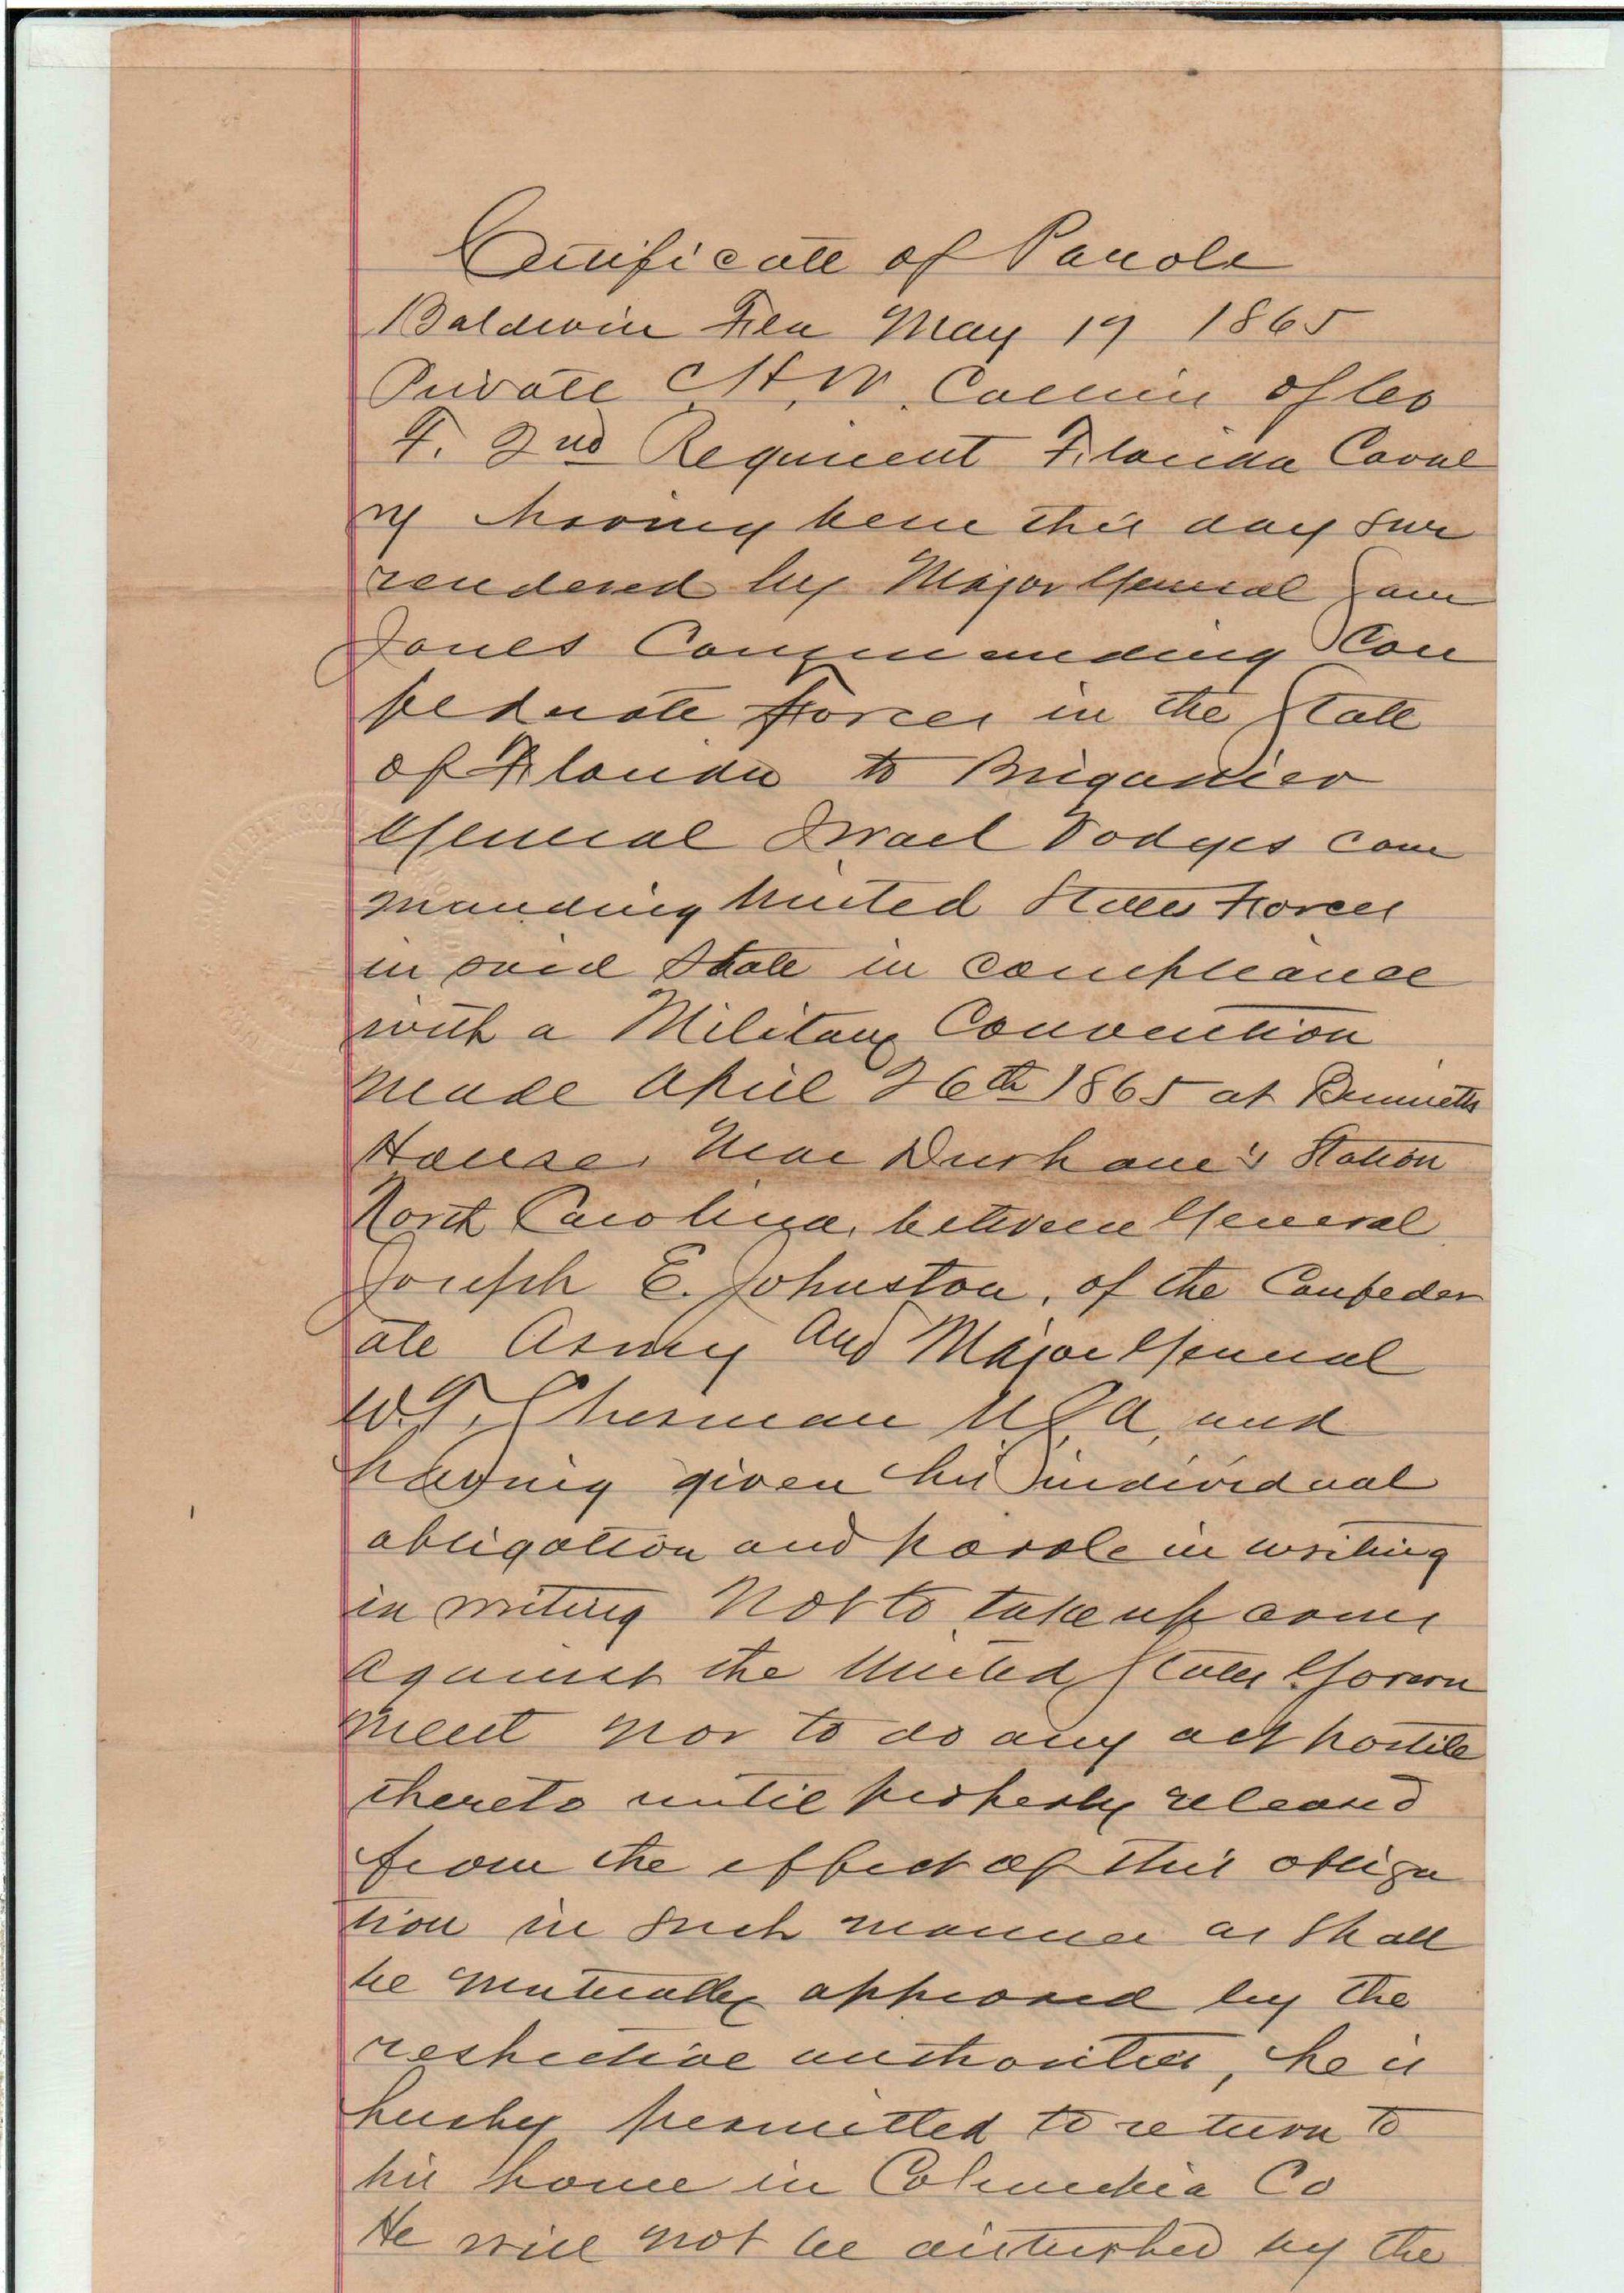 Certificate of Parole
Baldwin Fla May 17 1865
Private C.H.W. Collin of Co
F. 2nd Regiment Florida Caval
ry having been this day sur
rendered by Major General Sam
Jones Commanding Con
federate Forces in the State
of Florida to Brigadier
General Israel Vodges com
manding United States Forces
in said State in compliance
with a Military Convention
made April 26th 1865 at Bennetts
House, Near Durham's Station
North Carolina, between General
Joseph E. Johnston, of the Confeder
ate Army and Major General
W.T. Sherman U.S.A. and
having given his individual
obligation and parole in writing
in writing Not to take up arms
against the United States Govern
ment nor to do any act hostile
thereto until properly released
from the effect of this obliga
tion in such manner as shall
be mutually approved by the
respective authorities, he is
hereby permitted to return to
his home in Columbia Co
He will not be disturbed by the